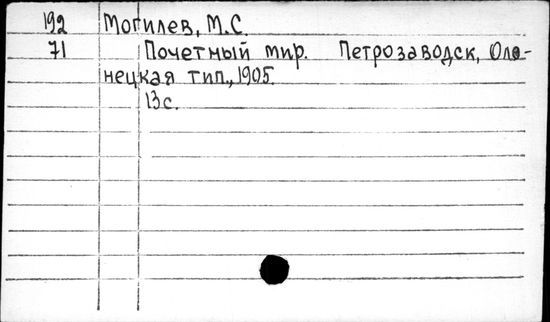 192 Могилев, М.С.
71 Почетный мир. Петрозаводск, Оло-
нецкая тип., 1905.
13 с.